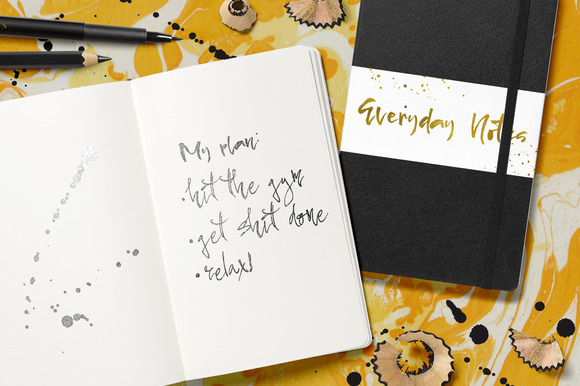 My plan:
• hit the gym
• get shit done
• relax!
Everyday Notes